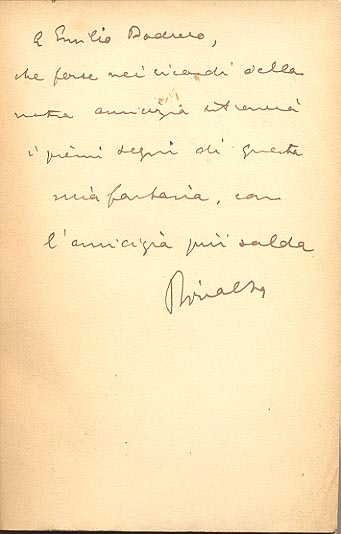 A Emilio Bodrero,
che forse nei ricordi della
nostra amicizia ritroverà
i primi segni di questa
mia fantasia, con
l'amicizia più salda
Rinaldo